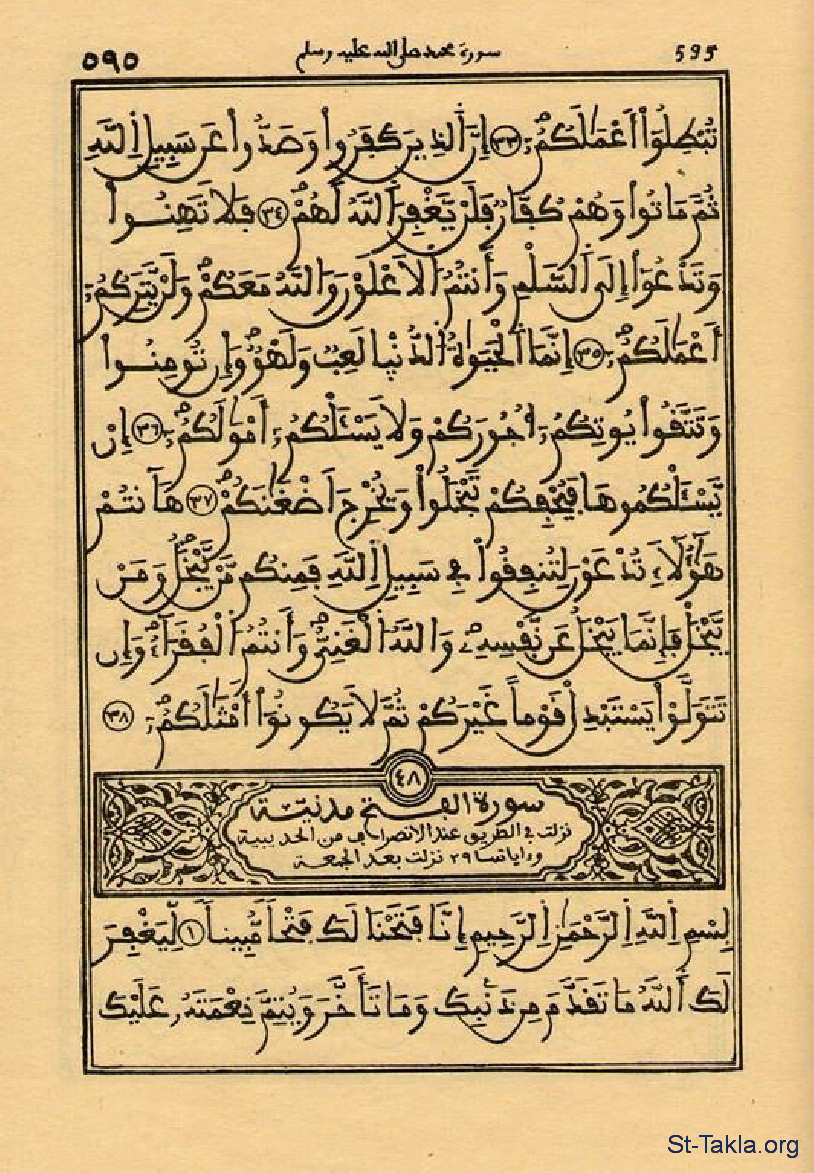 ٥٩٥ سورة محمد صلى الله عليه وسلم 595
تُبْطِلُوٓاْ أَعْمَٰلَكُمُۥٓ ٣٣ إِنَّ ٱلذِينَ كَفَرُواْ وَصَدُّواْ عَن سَبِيلِ ٱللَّهِ
ثُمَّ مَاتُواْ وَهُمْ كُفَّارٌ فَلَنْ يَّغْفِرَ ٱللَّهُ لَهُمْ ٣٤ فَلَا تَهِنُواْ
وَتَدْعُوٓاْ إِلَى ٱلسَّلْمِ وَأَنتُمُ ٱلْأَعْلَوْنَ وَاللَّهُ مَعَكُمْ وَلَنْ يَّتِرَكُمُۥٓ
أَعْمَٰلَكُمُۥٓ ٣٥ إِنَّمَا ٱلْحَيَوٰةُ ٱلدُّنْيَا لَعِبٌ وَلَهْوٌ وَإِن تُومِنُواْ
وَتَتَّقُواْ يُوتِكُمُۥٓ أُجُورَكُمْ وَلَا يَسْـَٔلْكُمُۥٓ أَمْوَٰلَكُمُۥٓ ٣٦ إِنْ
يَّسْـَٔلْكُمُوهَا فَيُحْفِكُمْ تَبْخَلُواْ وَيُخْرِجَ اَضْغَٰنَكُمْ ٣٧ هَآنتُمْ
هَٰٓؤُلَآءِ تُدْعَوْنَ لِتُنفِقُواْ فِى سَبِيلِ ٱللَّهِ فَمِنكُم مَّنْ يَّبْخَلُ وَمَنْ
يَّبْخَلْ فَإِنَّمَا يَبْخَلُ عَن نَّفْسِهِۦ وَاللَّهُ ٱلْغَنِىُّ وَأَنتُمُ ٱلْفُقَرَآءُ وَإِن
تَتَوَلَّوْاْ يَسْتَبْدِلْ قَوْماً غَيْرَكُمْ ثُمَّ لَا يَكُونُوٓاْ أَمْثَٰلَكُمُۥٓ ٣٨
٤٨
سورة الفتح مدنية
نزلت في الطريق عند الانصراف من الحديبية
وءاياتها ٢٩ نزلت بعد الجمعة
بِسْمِ ٱللَّهِ ٱلرَّحْمَٰنِ ٱلرَّحِيمِ إِنَّا فَتَحْنَا لَكَ فَتْحاً مُّبِيناً ١ لِّيَغْفِرَ
لَكَ ٱللَّهُ مَا تَقَدَّمَ مِن ذَنۢبِكَ وَمَا تَأَخَّرَ وَيُتِمَّ نِعْمَتَهُۥ عَلَيْكَ
St-Takla.org